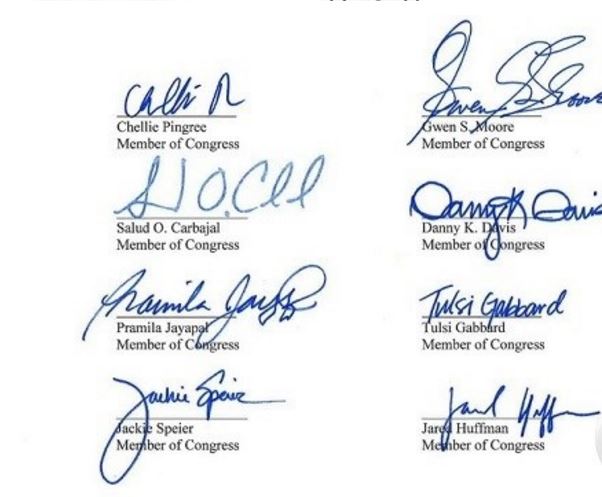 Chellie Pingree
Member of Congress
Gwen S. Moore
Gwen S. Moore
Member of Congress
S O. C
Salud O. Carbajal
Member of Congress
Danny K Davis
Danny K. Davis
Member of Congress
Pramila
Pramila Jayapal
Member of Congress
Tulsi Gabbard
Tulsi Gabbard
Member of Congress
Jackie Speier
Jackie Speier
Member of Congress
Jared Huffman
Member of Congress